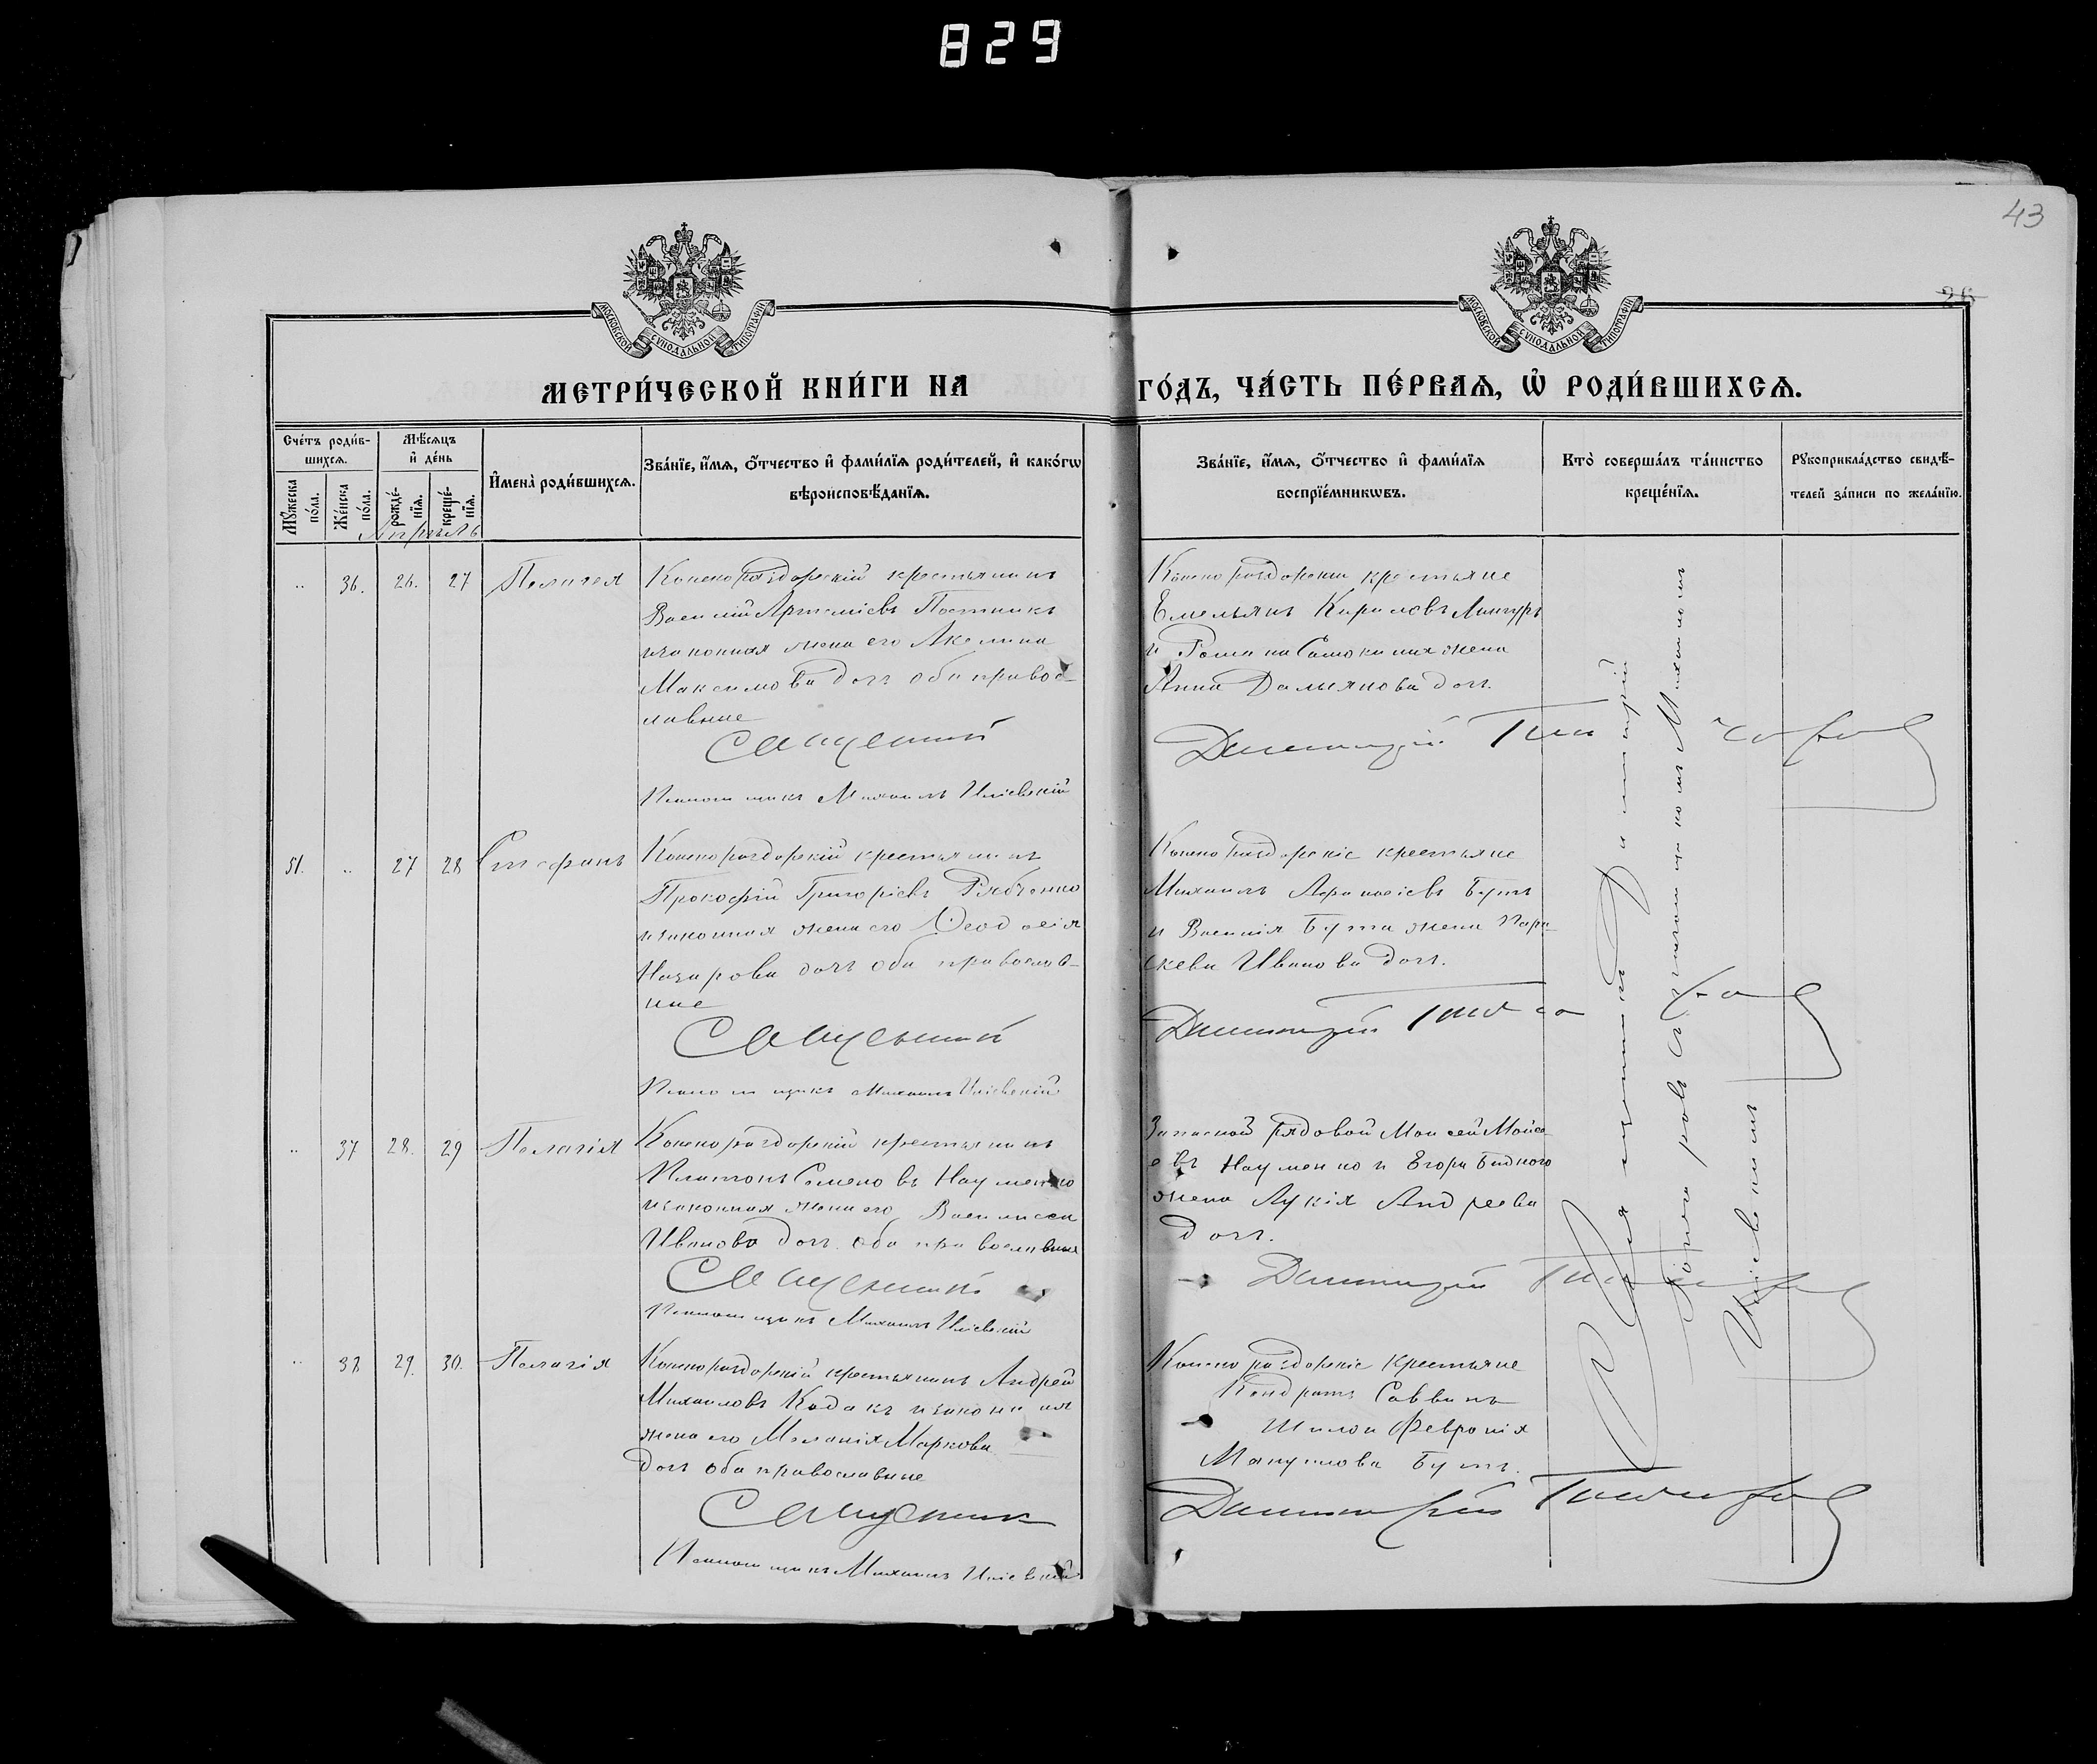 829
43
26
МОСКОВСКОЙ СУНОДАЛЬНОЙ ТИПОГРАФІИ
МОСКОВСКОЙ СУНОДАЛЬНОЙ ТИПОГРАФІИ
МЕТРИ́ЧЕСКОЙ КНИ́ГИ НА
ГО́ДЪ, ЧА́СТЬ ПЕ́РВАѦ, Ѡ҆ РОДИ́ВШИХСѦ.
Сче́тъ роди́в-
шихсѧ.
Мѣ́сѧцъ
и҆ де́нь
Мꙋ́жеска по́ла.
Же́нска по́ла.
рожде́-нїѧ.
креще́-нїѧ.
И҆мена̀ роди́вшихсѧ.
Зва́нїе, и҆́мѧ, ѻ҆́тчество и҆ фами́лїѧ роди́телей, и҆ како́гѡ
вѣроисповѣ́данїѧ.
Зва́нїе, и҆́мѧ, ѻ҆́тчество и҆ фами́лїѧ
воспрїе́мникѡвъ.
Кто̀ соверша́лъ та́инство
креще́нїѧ.
Рꙋкоприкла́дство свидѣ́-
телей за́писи по жела́нїю.
Апрель
.. 36. 26. 27 Пелагея
Конскораздорскій крестьянинъ
Василій Артеміевъ Постникъ
изаконная жена его Акелина
Максимова дочъ оба правос-
лавные
Священникъ
Псаломщикъ Михаилъ Иліевскій
Конскораздорскіи крестьяне
Емельянъ Кириловъ
и Романа жена
Анна Дамьянова доч.
Димитрій
51. .. 27 28 Стефанъ
Конскораздорскій крестьянинъ
Прокофій Григоріевъ Рябченко
изаконная жена его Феодосія
Назарова дочъ оба православ-
ные
Священникъ
Псаломщикъ Михаилъ Иліевскій
Конскораздорскіе крестьяне
Михаилъ Афанасіевъ Бутъ
и Василія Бута жена Пара-
скева Иванова доч.
Димитрій
.. 37 28. 29 Пелагія
Конскораздорскій крестьянинъ
Платонъ Семеновъ Науменко
изаконная жена его Василиса
Иванова доч. оба православные
Священникъ
Псаломщикъ Михаилъ Иліевскій
Запасной рядовой Моисей Мойсе-
евъ Науменко и Егора Бидного
жена Лукія Андреева
доч.
Димитрій
.. 38 29. 30. Пелагія
Конскораздорскій крестьянинъ Андрей
Михаиловъ Кодакъ изаконная
жена его Меланія Маркова
доч оба православные
Священник
Псаломщикъ Михаилъ Иліевскій
Конскораздорскіе крестьяне
Кондратъ Саввинъ
Шило и Феврония
Мануилова Бутъ.
Димитрій
Священникъ Димитрій
съ псаломщикомъ Михаиломъ
Иліевскимъ